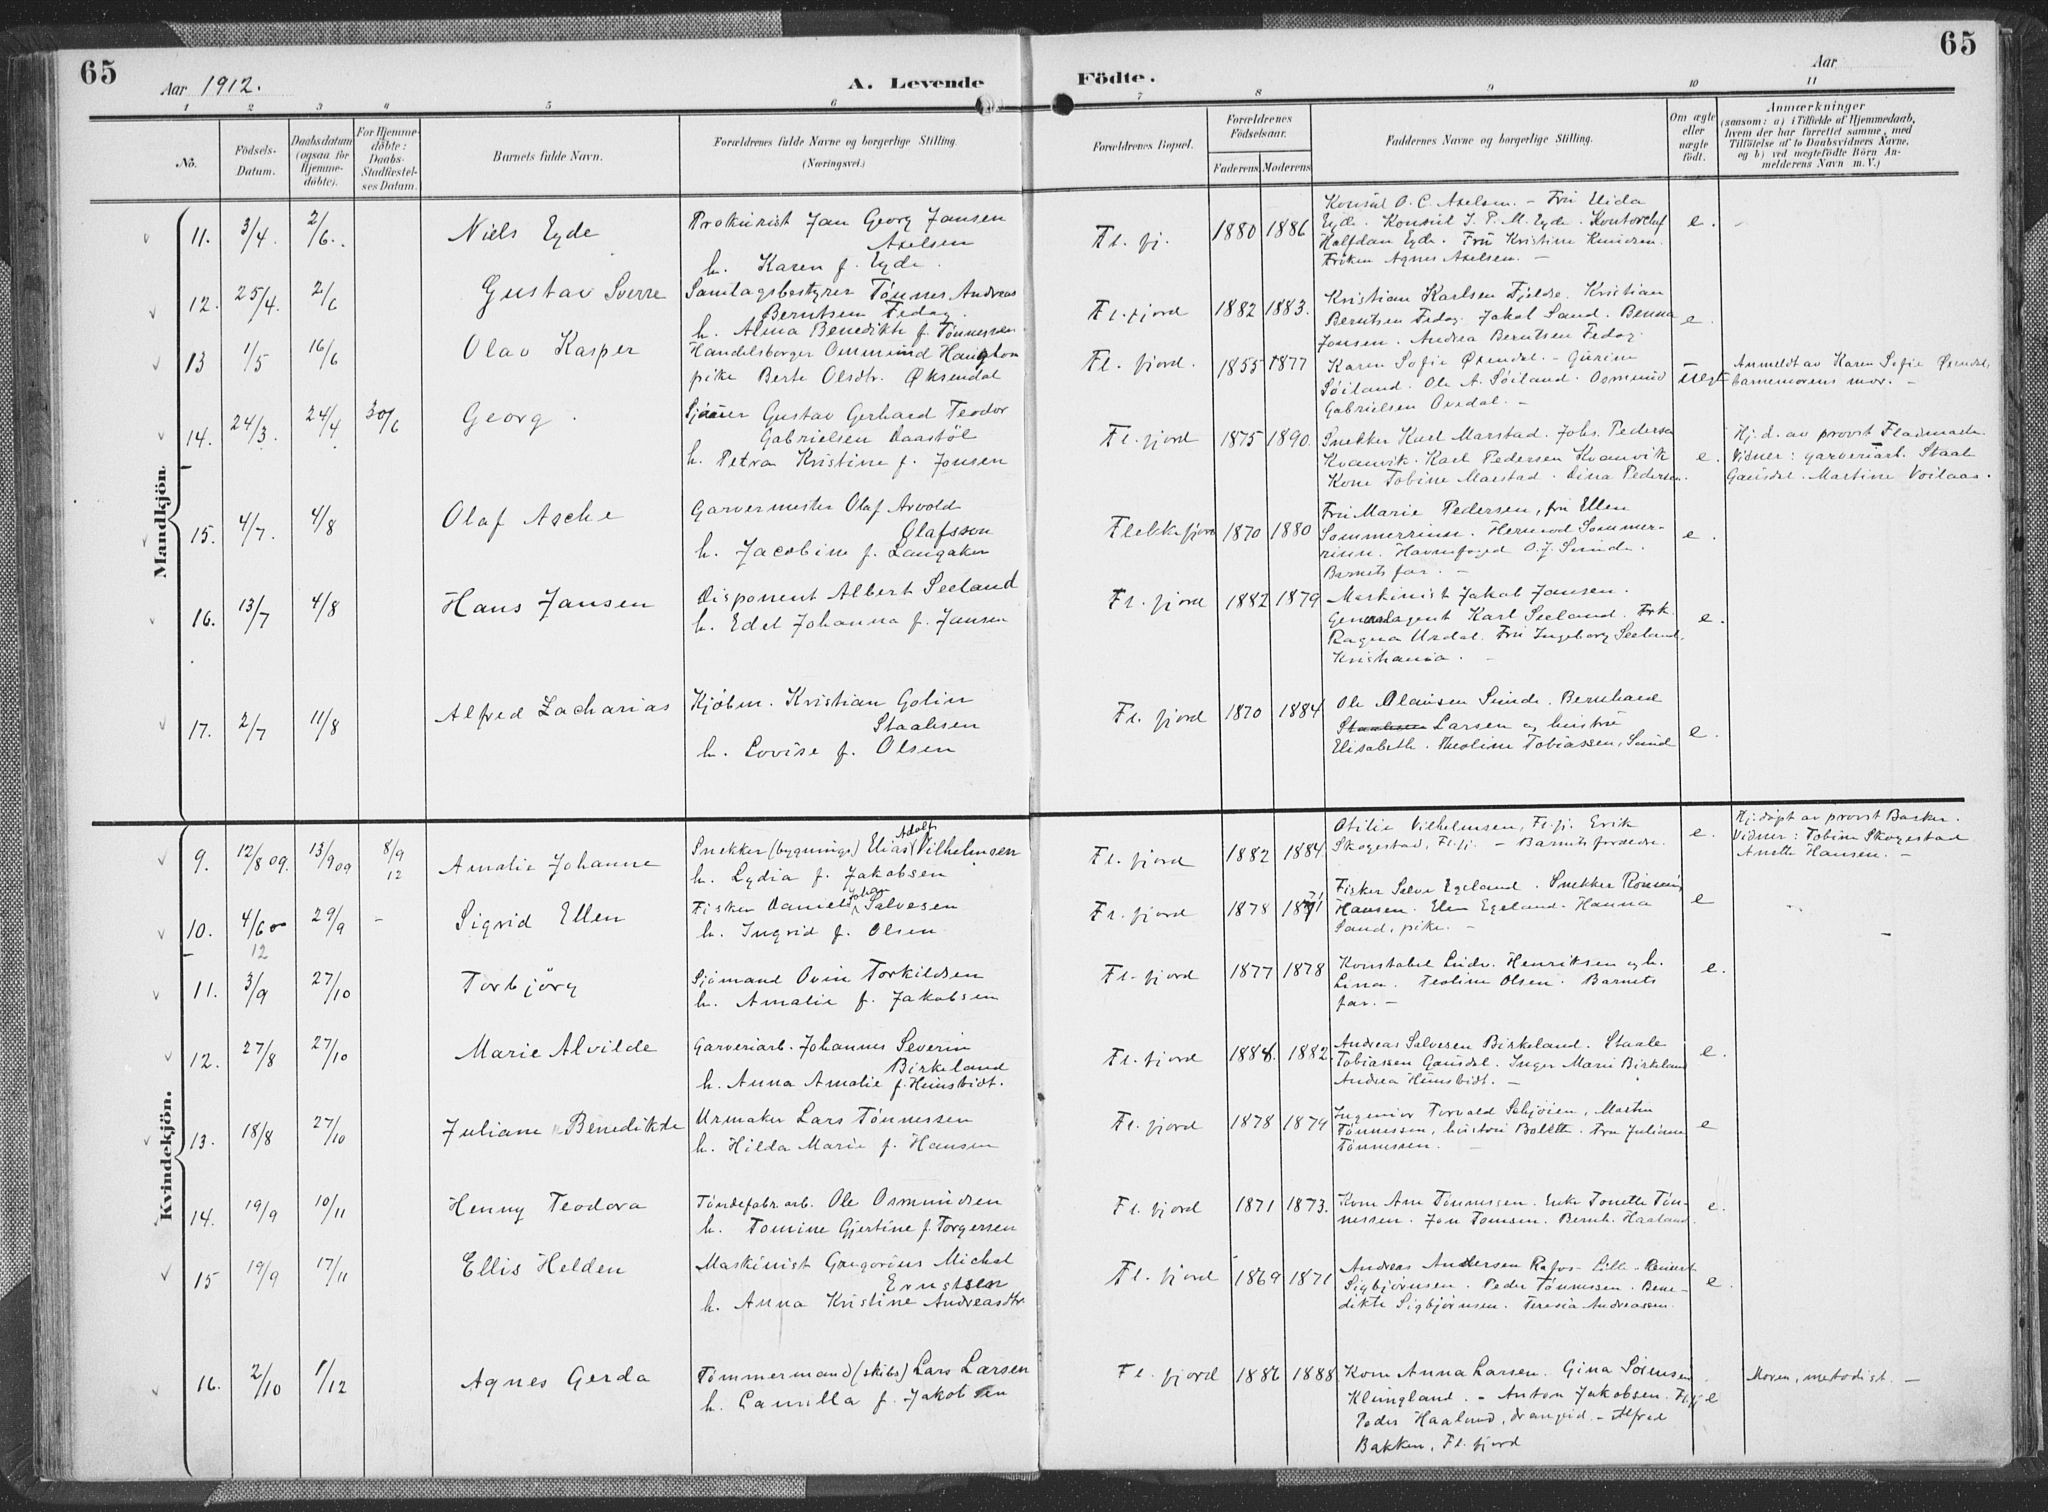 65
Aar 1912.
A. Levende
Födte.
Aar
65
1
2
3
4
5
6
7
8
9
10
11
No.
Födsels-
Datum.
Daabsdatum
(ogsaa for
Hjemme-
döbte).
For Hjemme-
döbte:
Daabs-
Stadfæstel-
ses Datum.
Barnets fulde Navn.
Forældrenes fulde Navne og borgerlige Stilling.
(Næringsvei.)
Forældrenes Bopæl.
Forældrenes
Födselsaar.
Faderens.
Moderens.
Faddernes Navne og borgerlige Stilling.
Om ægte
eller
uægte
födt.
Anmærkninger
(saasom: a) i Tilfælde af Hjemmedaab,
hvem der har forrettet samme, med
Tilföielse af to Daabsvidners Navne,
og b) ved uægtefödte Börn An-
melderens Navn m. V.)
Mandkjön.
11. 3/4. 2/6. Niels Eyde
Prokurist Jan Georg Jansen
Axelsen
h. Karen f. Eyde.
Fl. fj. 1880 1886
Konsul O. C. Axelsen. – Fru Elida
Eyde. Konsul J. P. M. Eyde. Kontorchef
Halfdan Eyde. Fru Kristine Knudsen.
Frøken Agnes Axelsen. –
e. –
12. 25/4. 2/6 Gustav Sverre
Samlagsbestyrer Tønnes Andreas
Berntsen Fedog.
h. Alma Benedikte f. Tønnessen
Fl. fjord 1882 1883.
Kristian Karlsen Fjelse. Kristian
Berntsen Fedog. Jakob Sand. Benna
Jonsen. Andrea Berntsen Fedog
e.
13 1/5 16/6 Olav Kasper
Handelsborger Ommund
pike Berte Olsdtr. Øksendal
Fl. fjord. 1855 1877
Karen Sofie Øxendal. – Gurine
Söiland. Ole A. Söiland. Osmund
Gabrielsen Ovedal. –
uegt
Anmeldt av Karen Sofie Øxendal,
barnemorens mor. –
14. 24/3. 24/4. 30/6 Georg.
Gustav Gerhard Teodor
Gabrielsen Daastöl
h. Petra Kristine f. Jonsen
Fl. fjord 1875 1890.
Snekker Karl Marstad. Johs. Pedersen
Kvanvik. Karl Pedersen Kvanvik
Kone Tobine Marstad. Dina Pedersen.
e.
Hj. d. av provst Fladmark.
Vidner: garveriarb. Staale
Gausdal. Martine Voilaas.
15. 4/7. 4/8 Olaf Asche
Garvermester Olaf Arvold
Olafsson
h. Jacobine f. Langaker
Flekkefjord 1870 1880
Fru Marie Pedersen, fru Ellen
Sommerrinn. Hermod Sommer-
rinn. Havnefoged O. J. Sunde.
Barnets far. –
e.
16. 13/7 4/8 Hans Jansen
Disponent Albert Seeland
h. Edel Johanna f. Jansen
Fl. fjord 1882 1879
Maskinist Jakob Jansen.
Generalagent Karl Seeland. Frk.
Ragna Urdal. Fru Ingeborg Seeland,
Kristiania. –
e.
17. 2/7 11/8 Alfred Zacharias
Kjöbm. Kristian Golin
Staalesen
h. Lovise f. Olsen
Fl. fjord 1870 1884
Ole Olausen Sunde. Bernhard
Staalesen Larsen og hustru
Elisabeth. Theoline Tobiassen, Sund
e.
Kvindekjön.
9. 12/8 09. 13/9 09 8/9 12 Amalie Johanne
Adolf
Snekker (bygnings) Elias Vilhelmsen
h. Lydia f. Jakobsen
Fl. fjord 1882 1884.
Otilie Vilhelmsen, Fl. fj. Erik
Skogestad, Fl. fj. – Barnets foreldre.
e.
Hj. döpt av provst Barker.
Vidner: Tobine Skogestad
Anette Hansen. –
10. 4/6 12 29/9 – Sigrid Ellen
Johan
Fisker Daniel Salvesen
h. Ingrid f. Olsen.
Fl. fjord 1878
Fisker Salve Egeland. Snekker
Hansen. Elen Egeland. Hanna
Sand, pike. –
e
11. 3/9 27/10 Torbjörg
Sjömand Ovin Torkildsen
h. Amalie f. Jakobsen
Fl. fjord 1877 1878
Konstabel Ludv. Henriksen og h.
Lina. Teoline Olsen. Barnets
far. –
e.
12. 27/8 27/10 Marie Alvilde
Garveriarb. Johannes Severin
Birkeland
h. Anna Amalie f. Heimstidt.
Fl. fjord 1884. 1882.
Andreas Salvesen Birkeland. Staale
Tobiassen Gausdal. Inger Marie Birkeland
Andrea Heimstidt. –
e.
13. 18/8 27/10 Juliane Benedikte
Urmaker Lars Tønnessen
h. Hilda Marie f. Hansen
Fl. fjord 1878 1879
Ingeniør Torvald Schjöien, Martin
Tønnessen, hustru Bolette. Fru Juliane
Tønnessen. –
e
14. 19/9 10/11 Henny Teodora
Töndefabr. arb. Ole Osmundsen
h. Tomine Gjertine f. Torgersen
Fl. fjord 1871 1873.
Kone Ane Tönnessen. Enke Tonette Tøn-
nessen. Jon Tomsen. Bernh. Haaland.
e.
15 19/9 17/11 Ellis Helden
Maskinist Gregorius Michal
Ernstsen
h. Anna Kristine Andreasdtr.
Fl. fjord 1869 1871
Andreas Andersen Rafos.
Sigbjörnsen. Peder Tønnessen. Bene-
dikte Sigbjörnsen. Teresia Andreassen.
e.
16. 2/10 1/12 Agnes Gerda
Tømmermand (skibs) Lars Larsen
h. Camilla f. Jakobsen
Fl. fjord 1886 1888
Kone Anna Larsen. Gina Sörensen
Klungland. – Anton Jakobsen. Fl. fj.
Peder Haaland, drangeid. – Alfred
Bakken, Fl. fjord
e
Moren, metodist. –